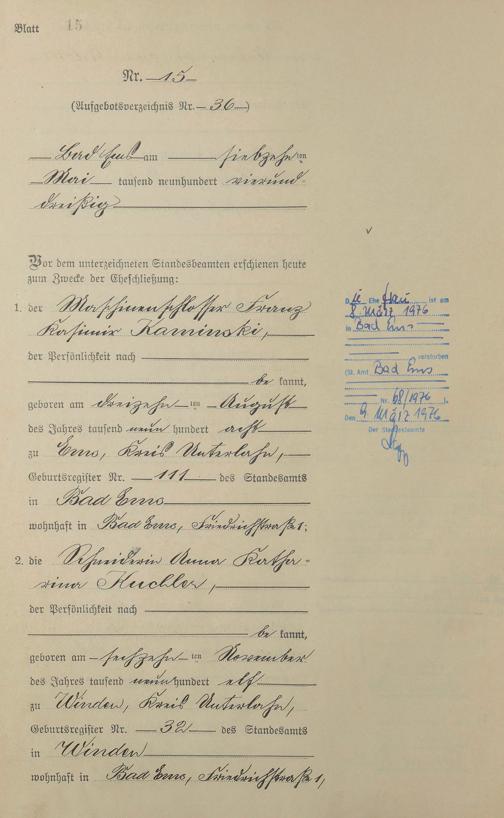 Blatt 15
Nr. 15
(Aufgebotsverzeichnis Nr. 36)
Bad Ems am siebzehnten
Mai tausend neunhundert vierund-
dreißig
Vor dem unterzeichneten Standesbeamten erschienen heute
zum Zwecke der Eheschließung:
1. der Maschinenschlosser Franz
Kasimir Kaminski,
der Persönlichkeit nach
be kannt,
geboren am dreizehnten August
des Jahres tausend neun hundert acht
zu Ems, Kreis Unterlahn,
Geburtsregister Nr. 111 des Standesamts
in Bad Ems
wohnhaft in Bad Ems, Friedrichstraße 1;
2. die Schneiderin Anna Katha-
rina Kuchler,
der Persönlichkeit nach
be kannt,
geboren am sechzehnten November
des Jahres tausend neunhundert elf
zu Winden, Kreis Unterlahn,
Geburtsregister Nr. 32 des Standesamts
in Winden
wohnhaft in Bad Ems, Friedrichstraße 1,
Die Ehefrau ist am
8. März 1976
in Bad Ems
verstorben
(St. Amt Bad Ems
Nr. 68/1976).
Den 9. März 1976
Der Standesbeamte